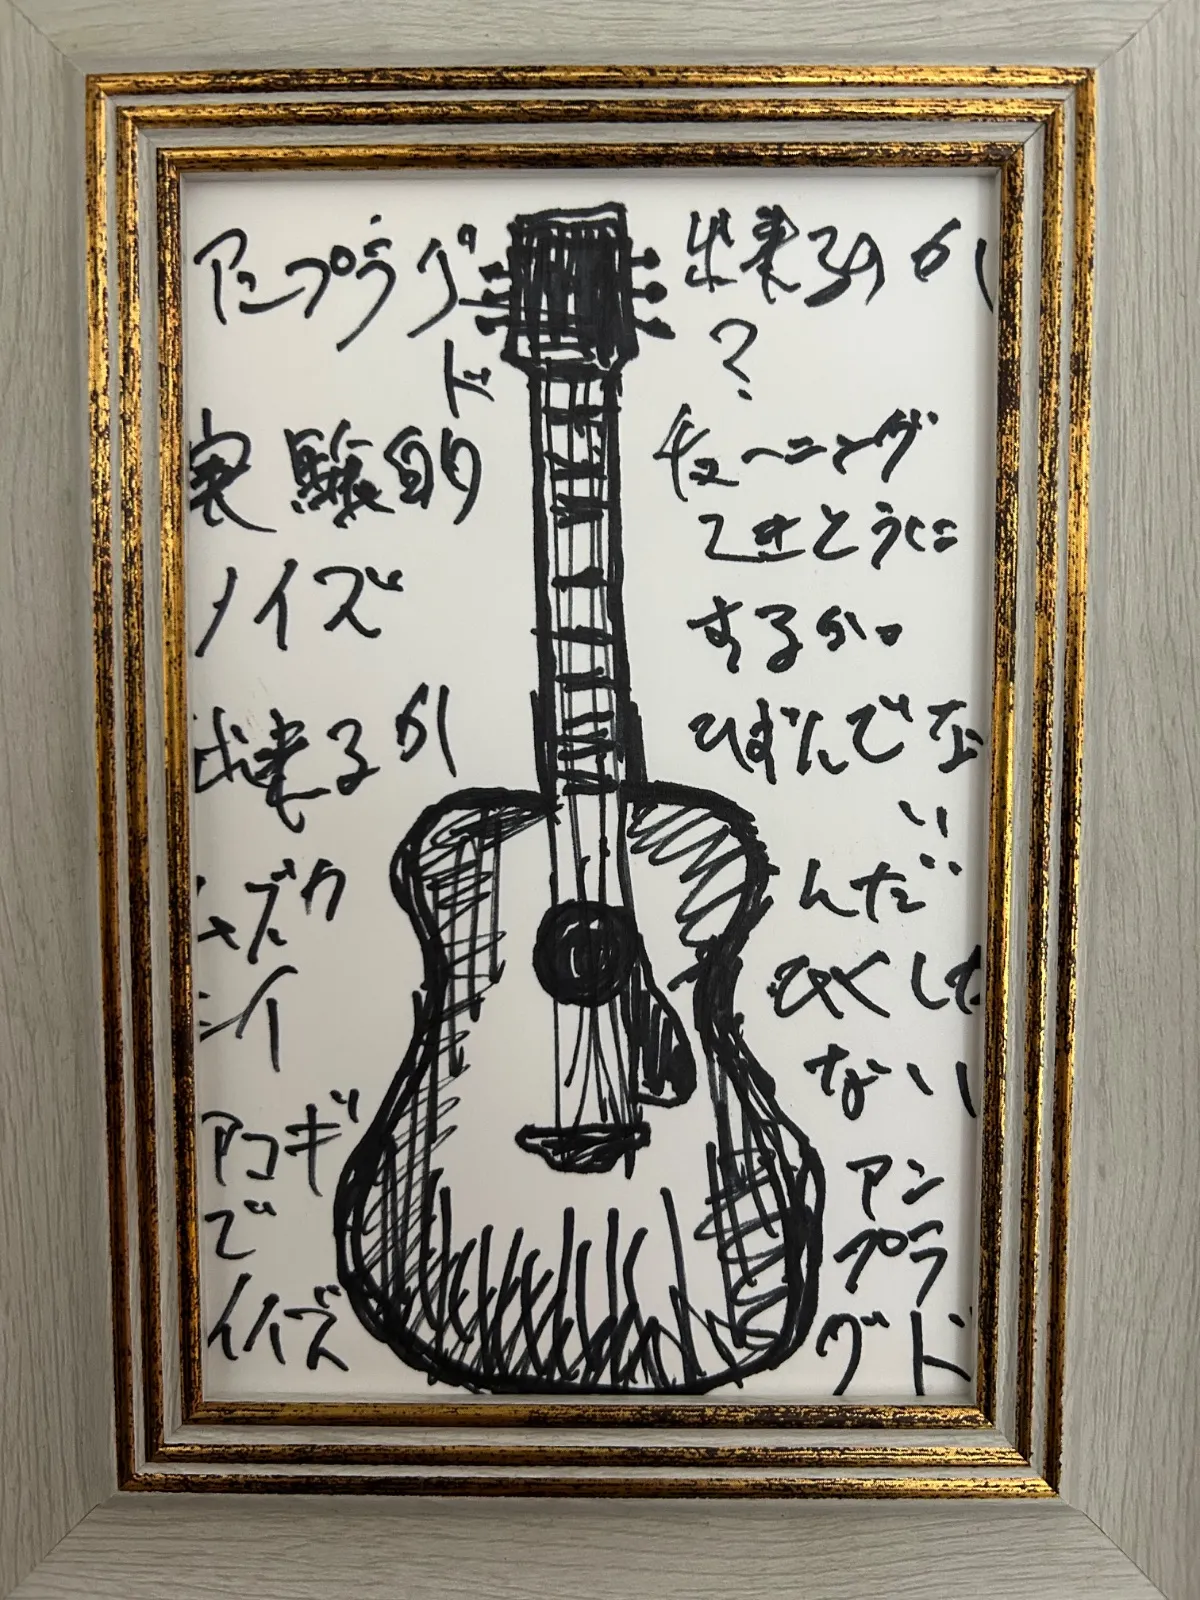 アンプラグ
ド
実験的
ノイズ
出来るか
ムズカ
シイ
アコギ
で
ノイズ
出来るのか
?
チューニング
てきとうに
するか。
ひずんでな
い
んだ
ひくしか
ない
アン
プラ
グド